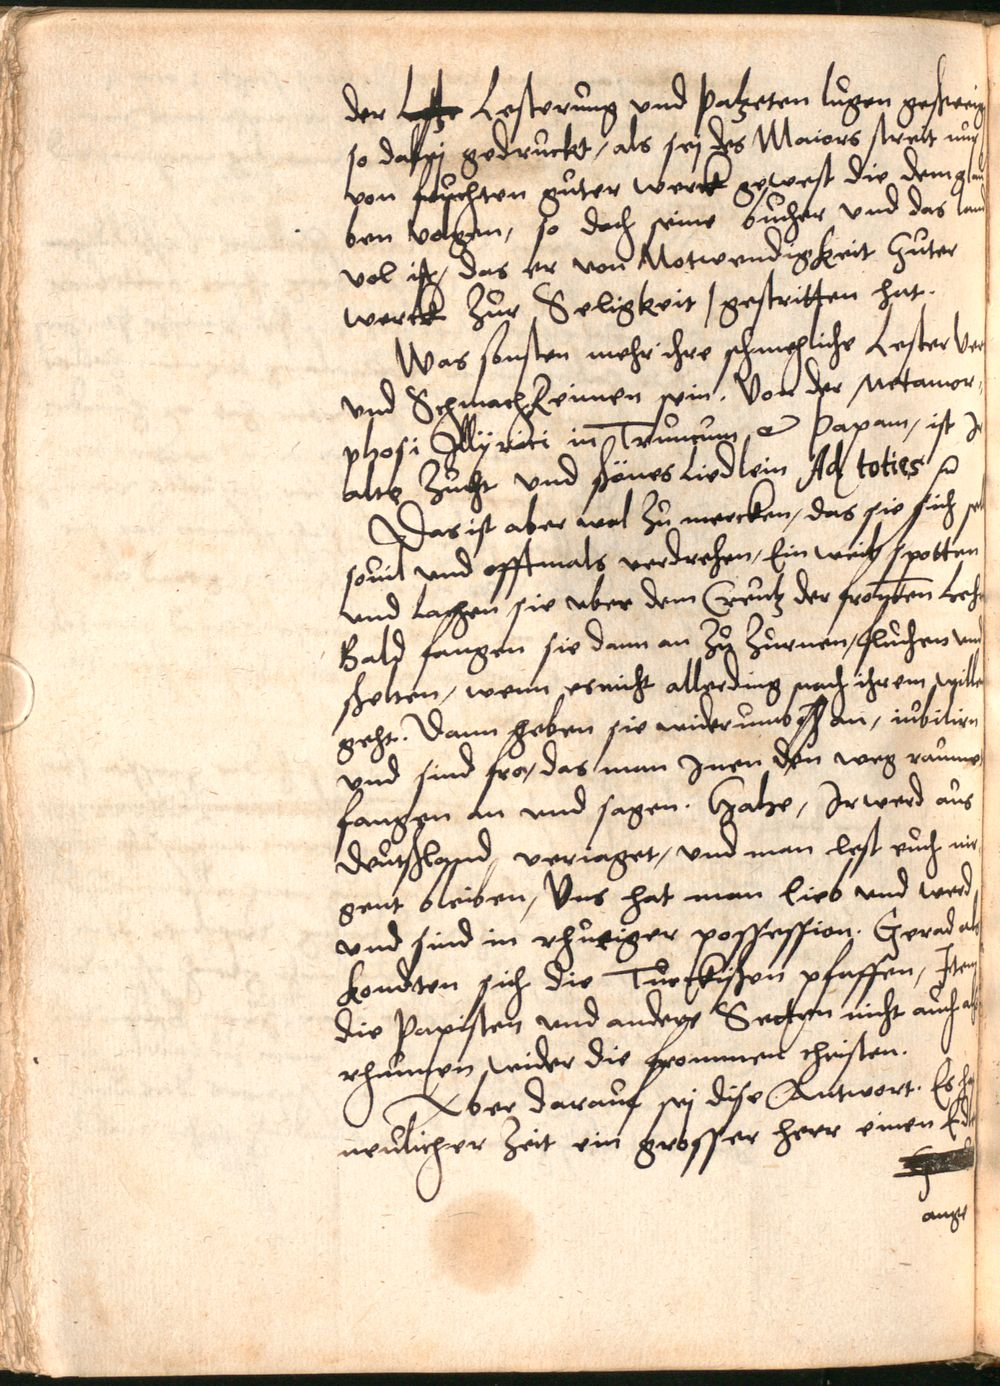 der Lesterung und Patzeten lugen geschweig
so dabei gedruckt, als sej des Maiors streit nur
von fruchten guter werck gewest die dem glau
ben volgen, so doch seine bucher und das land
vol ist, das er von Notwendigkeit Guter
werck Zur Seligkeit, gestritten hat.
Was sonsten mehr ihre schmehliche Lester Ver
und Schmach Reimen sein. Von der Metamor-
phosi Illÿrici in Truncum et Papam, ist Ir
alte Zucht und schönes Liedlein Ad toties
Das ist aber wol zu mercken, das sie sich
souil und offtmals verdrehen, Ein weil spotten
und lachen sie uber dem Creutz der fromben Lehr
Bald fangen sie dann an zu Zurnen, fluchen und
schelten, wenn es nicht allerding nach ihrem wille
geht. Dann heben sie widerumb an, iubilirn
und sind fro, das man Inen den weg raume
fangen an und sagen. Ir werd aus
deutschland veriaget, und man lest euch nir-
gent bleiben, Uns hat man lieb und werd,
und sind in rhuiger possession. Gerad als
kondten sich die Turckischen pfaffen, Item
die Papisten und andere Secten nicht auch also
rhumen wider die frommen christen.
Aber darauf sej dise Antwort. Es ha
neulicher Zeit ein grosser herr einen Ede
ange